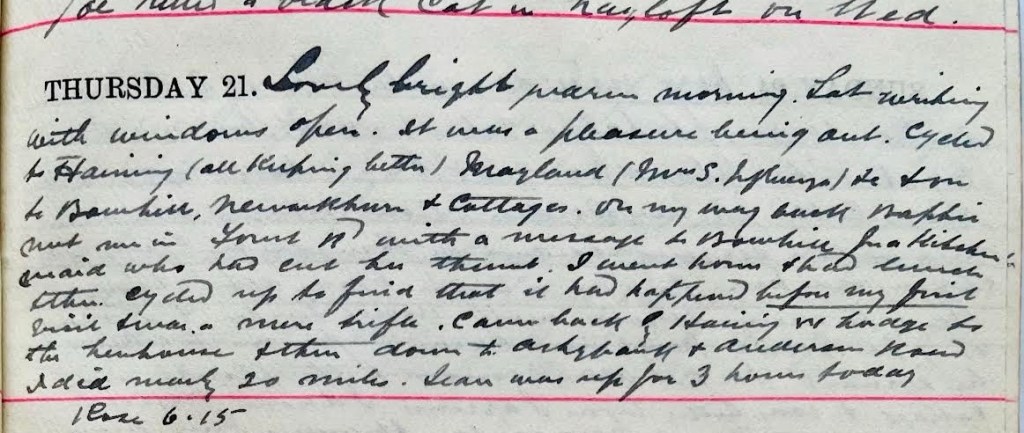 Joe killed a  Cat in hayloft on Wed.
THURSDAY 21. Lovely bright warm morning. Sat writing
with windows open. It was a pleasure being out. Cycled
to Haining (all keeping better) Mayland (Mrs S. Influenza) & on
to Bowhill, Newarkburn & Cottages. On my way back
met me in Forest Rd with a message to Bowhill for a kitchen-
maid who had cut her thumb. I went home & had lunch
then cycled up to find that it had happened before my first
visit & was a mere trifle. Came back by Haining W Lodge to
the henhouse & then down to Ashybank & Anderson Road
I did nearly 20 miles. Jean was up for 3 hours today
Rose 6.15